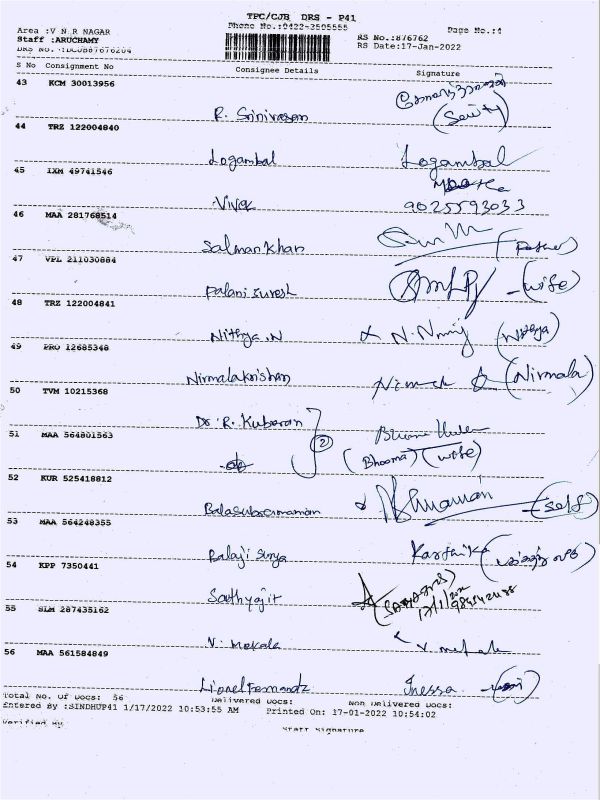 TPC/CJB DRS - P41
Area :V N R NAGAR Phone No.:0422-3505555 Page No.:4
Staff :ARUCHAMY RS No.:876762
RS Date:17-Jan-2022
S No Consignment No Consignee Details Signature
43 KCM 30013956
R. Srinivasan
44 TRZ 122004840
Logambal Logambal
45 IXM 49741546
Vivek 9025593033
46 MAA 281768514
Salman Khan
47 VPL 211030884
Palani Suresh (wife)
48 TRZ 122004841
Nithya.N (Nithya)
49 PRO 12685348
Nirmalakrishnan (Nirmala)
50 TVM 10215368
Dr. R. Kuberan
51 MAA 564801563
2 (Bhooma) (wife)
52 KUR 525418812
Balasubramaniam (self)
53 MAA 564248355
Balaji Surya Karthika
54 KPP 7350441
Sathyajit
55 SLM 287435162
V. Mekala V. Mekala
56 MAA 561584849
Lionel Fernandz Inessa
Total No. of Docs: 56 Delivered Docs: Non Delivered Docs:
Entered By :SINDHUP41 1/17/2022 10:53:55 AM Printed On: 17-01-2022 10:54:02
Verified By Staff Signature